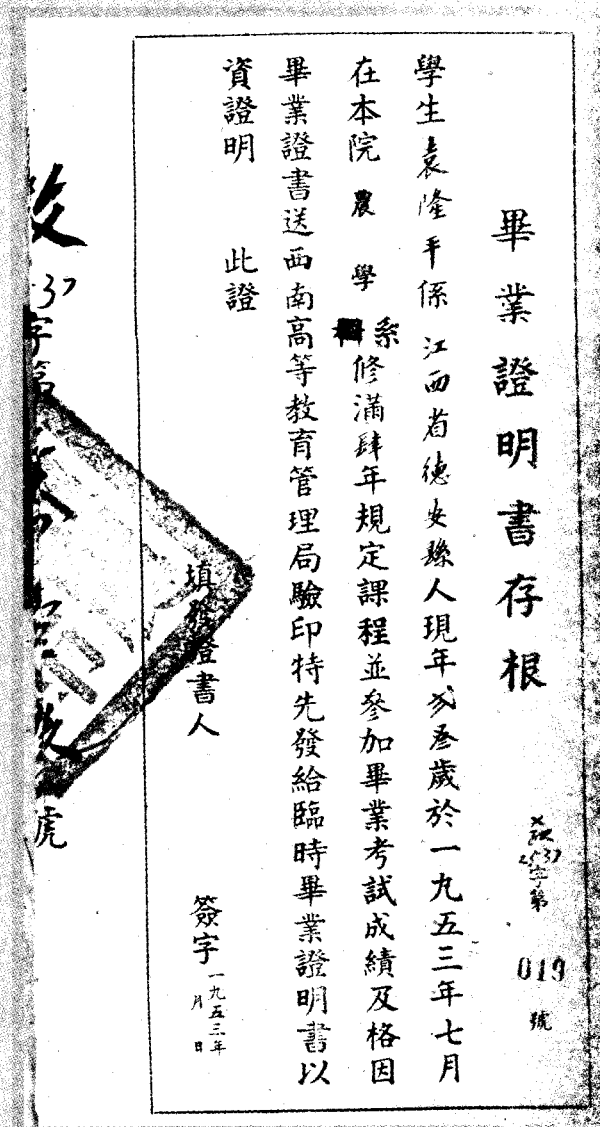 畢業證明書存根
字第 019 號
學生袁隆平係江西省德安縣人現年弍叁歲於一九五三年七月
在本院農學系修滿肆年規定課程並參加畢業考試成績及格因
畢業證書送西南高等教育管理局驗印特先發給臨時畢業證明書以
資證明 此證
填發證書人 簽字
一九五三年 月 日
字第 號